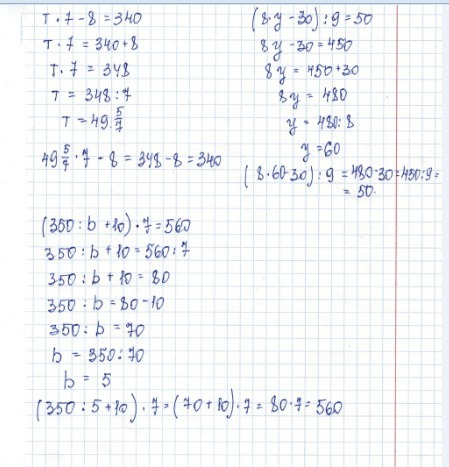 т · 7 - 8 = 340
т · 7 = 340 + 8
т · 7 = 348
т = 348 : 7
т = 49 5/7
49 5/7 · 7 - 8 = 348 - 8 = 340
(8 · y - 30) : 9 = 50
8y - 30 = 450
8y = 450 + 30
8y = 480
y = 480 : 8
y = 60
(8 · 60 - 30) : 9 = 480 - 30 = 450 : 9 =
= 50.
(350 : b + 10) · 7 = 560
350 : b + 10 = 560 : 7
350 : b + 10 = 80
350 : b = 80 - 10
350 : b = 70
b = 350 : 70
b = 5
(350 : 5 + 10) · 7 = (70 + 10) · 7 = 80 · 7 = 560